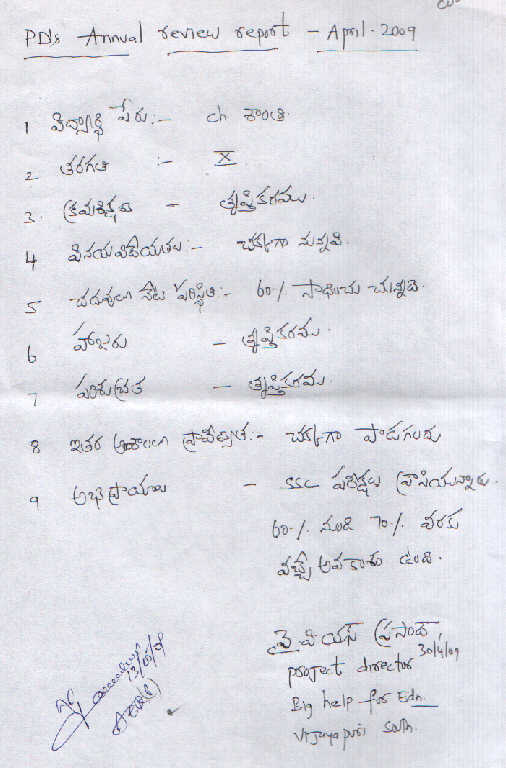 PDs Annual review report - April - 2009
1 విద్యార్థి పేరు :- ch శాంతి
2 తరగతి :- X
3. క్రమశిక్షణ - తృప్తికరము
4 వినయవిధేయతలు - చక్కగా నున్నవి.
5 చదువులో నేటి పరిస్థితి - 60% సాధించు చున్నది.
6 హాజరు - తృప్తికరము
7 పరిశుభ్రత - తృప్తికరము
8 ఇతర అంశాలలో ప్రావీణ్యత :- చక్కగా పాడగలదు
9 అభిప్రాయాలు - SSC పరీక్షలు వ్రాసియున్నారు.
60% నుండి 70% వరకు
వచ్చే అవకాశం ఉంది.
వై పియస్ ప్రసాద్,
project director 30/4/09
Big help for Edn.
Vijayapuri South.